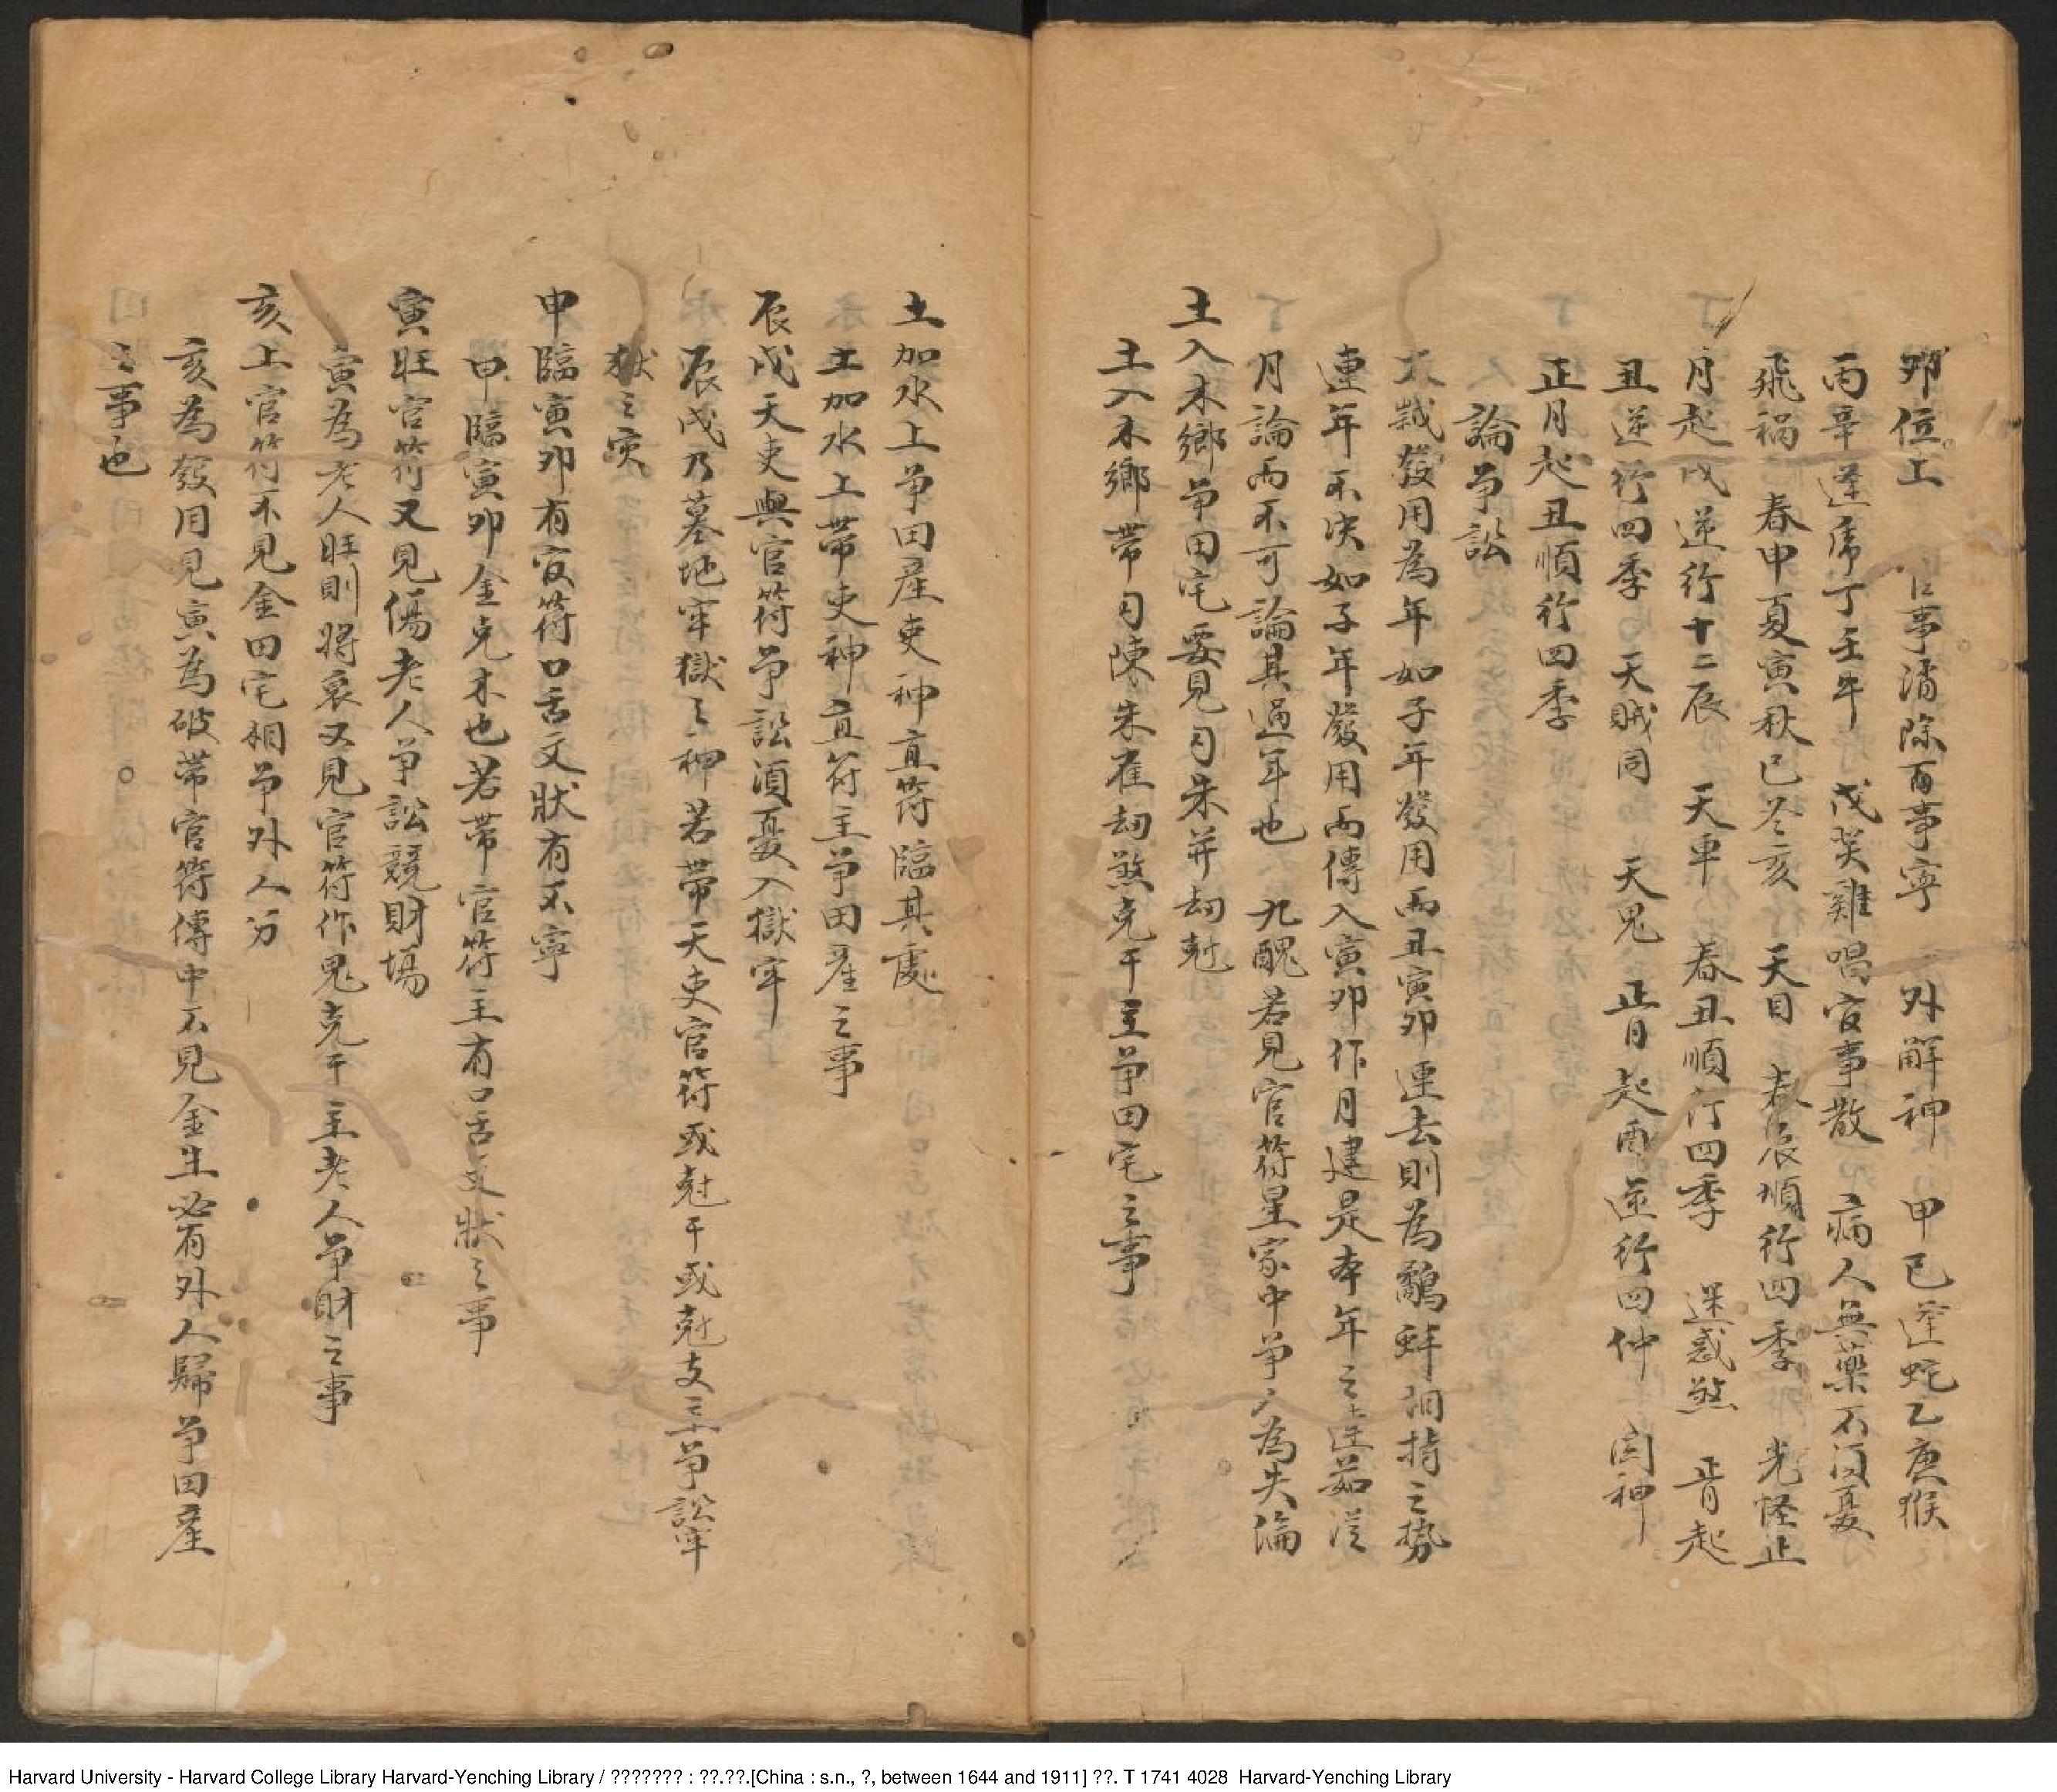 卯位上　百事消除百事寧　外解神　甲已逢蛇乙庚猴
丙辛逢虎丁壬牛　戊癸雞唱官事散　病人無藥不須憂
飛禍　春申夏寅秋巳冬亥　天目　春辰順行四季　光怪正
月起戌逆行十二辰　天車　春丑順行四季　迷惑煞　正月起
丑逆行四季　天賊同　天鬼　正月起酉逆行四仲　関神
正月起丑順行四季
論爭訟
太歲發用為年如子年發用而丑寅卯連去則為鷸蚌相持之勢
連年不决如子年年發用而傳入寅卯作月建是本年之連茹從
月論而不可論其過年也　九醜若見官符星家中爭 為失倫
土入木鄉爭田宅要見勾朱并刼尅
土入木鄉帶勾陳朱雀刼煞克干主爭田宅之事
土加水上爭田產吏神直符臨其處
土加水上帶吏神直符主爭田產之事
辰戌天吏與官符爭訟須憂入獄牢
辰戌乃墓地牢獄之神若帶天吏官符或尅干或尅支主爭訟牢
獄之灾
申臨寅卯有官符口舌文狀有不寧
申臨寅卯金克木也若帶官符主有口舌文狀之事
寅旺官符又見傷老人爭訟競財場
寅為老人旺則將衰又見官符作鬼克干主老人爭財之事
亥上官符不見金田宅相爭外人
亥為發用見寅為破帶官符傳中不見金生必有外人歸爭田產
之事也